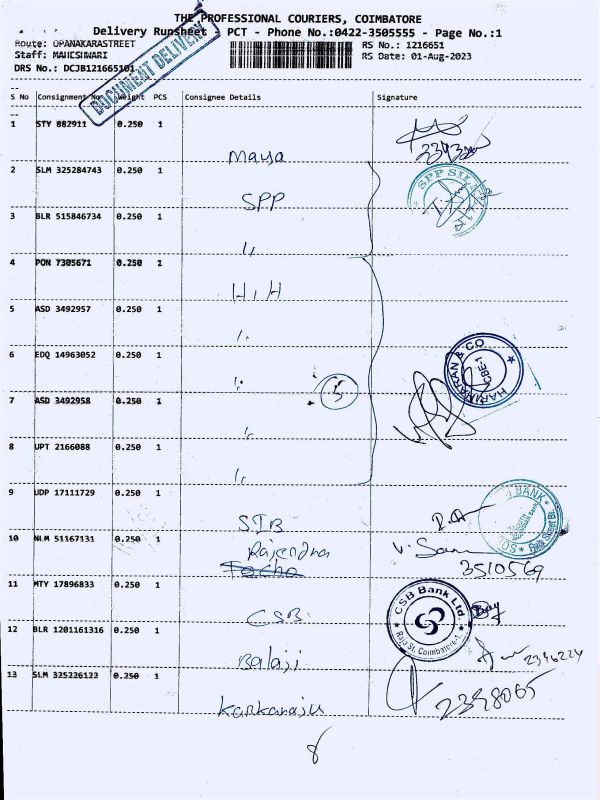 THE PROFESSIONAL COURIERS, COIMBATORE
Delivery Runsheet PCT - Phone No.:0422-3505555 - Page No.:1
Route: OPANAKARASTREET RS No.: 1216651
Staff: MAHESHWARI RS Date: 01-Aug-2023
DRS No.: DCJB121665101
DOCUMENT DELIVERY
S No Consignment No. Weight PCS Consignee Details Signature
1 STY 882911 0.250 1
Maya
2 SLM 325284743 0.250 1
SPP
SPP SILKS
3 BLR 515846734 0.250 1
"
4 PON 7305671 0.250 1
H.H
5 ASD 3492957 0.250 1
"
6 EDQ 14963052 0.250 1
"
HARIHARAN & CO
CBE-1
5
7 ASD 3492958 0.250 1
"
8 UPT 2166088 0.250 1
"
9 UDP 17111729 0.250 1
SIB
BANK
10 NLM 51167131 0.250 1
Rajendra
3510569
11 MTY 17896833 0.250 1
CSB
CSB Bank Ltd.
Raja St. Coimbatore-1
12 BLR 1201161316 0.250 1
Balaji
2396224
13 SLM 325226122 0.250 1
Karkaraju
2398065
8